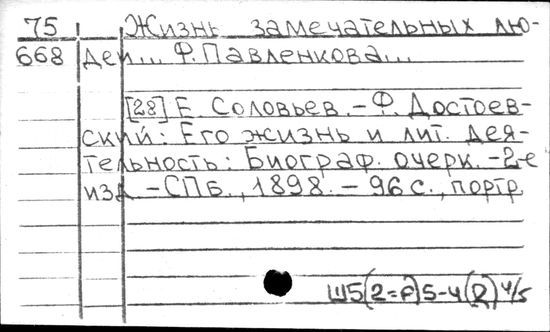 75 Жизнь замечательных лю-
668 дей... Ф. Павленкова...
[28] Е. Соловьев. - Ф. Достоев-
ский: Его жизнь и лит. дея-
тельность: Биограф. очерк. - 2-е
изд. - СПб., 1898. - 96 с., портр.
Ш5(2=Р)5-4(Д) 4/5